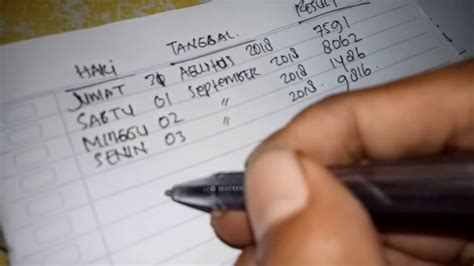 HARI TANGGAL RESULT
JUMAT 30 AGUSTUS 2018 7591
SABTU 01 SEPTEMBER 2018 8062
MINGGU 02 " 2018 1486
SENIN 03 " 2018. 9816.